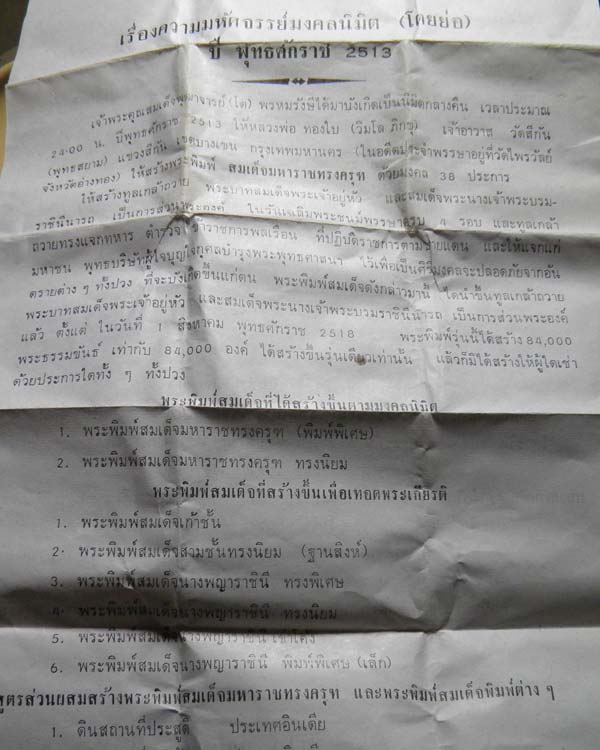 เรื่องความมหัศจรรย์มงคลนิมิต (โดยย่อ)
ปี พุทธศักราช 2513
เจ้าพระคุณสมเด็จพุฒาจารย์ (โต) พรหมรังษีได้มาบังเกิดเป็นนิมิตกลางคืน เวลาประมาณ
24.00 น. ปีพุทธศักราช 2513 ให้หลวงพ่อ ทองใบ (วิมโล ภิกขุ) เจ้าอาวาส วัดสีกัน
(พุทธสยาม) แขวงสีกัน เขตบางเขน กรุงเทพมหานคร (ในอดีตประจำพรรษาอยู่ที่วัดไพรวัลย์
จังหวัดอ่างทอง) ให้สร้างพระพิมพ์ สมเด็จมหาราชทรงครุฑ ด้วยมงคล 38 ประการ
ให้สร้างทูลเกล้าถวาย พระบาทสมเด็จพระเจ้าอยู่หัว และสมเด็จพระนางเจ้าพระบรม-
ราชินีนารถ เป็นการส่วนพระองค์ ในวันเฉลิมพระชนม์พรรษาครบ 4 รอบ และทูลเกล้า
ถวายทรงแจกทหาร ตำรวจ ข้าราชการพลเรือน ที่ปฏิบัติราชการตามชายแดน และให้แจกแก่
มหาชน พุทธบริษัทผู้ใจบุญใจกุศลบำรุงพระพุทธศาสนา ไว้เพื่อเป็นศิริมงคลจะปลอดภัยจากอัน
ตรายต่าง ๆ ทั้งปวง ที่จะบังเกิดขึ้นแก่ตน พระพิมพ์สมเด็จดังกล่าวมานี้ ได้นำขึ้นทูลเกล้าถวาย
พระบาทสมเด็จพระเจ้าอยู่หัว และสมเด็จพระนางเจ้าพระบรมราชินีนารถ เป็นการส่วนพระองค์
แล้ว ตั้งแต่ ในวันที่ 1 สิงหาคม พุทธศักราช 2518 พระพิมพ์รุ่นนี้ได้สร้าง 84,000
พระธรรมขันธ์ เท่ากับ 84,000 องค์ ได้สร้างขึ้นรุ่นเดียวเท่านั้น แล้วก็มิได้สร้างให้ผู้ใดเช่า
ด้วยประการใดทั้ง ๆ ทั้งปวง
พระพิมพ์สมเด็จที่ได้สร้างขึ้นตามมงคลนิมิต
1. พระพิมพ์สมเด็จมหาราชทรงครุฑ (พิมพ์พิเศษ)
2. พระพิมพ์สมเด็จมหาราชทรงครุฑ ทรงนิยม
พระพิมพ์สมเด็จที่สร้างขึ้นเพื่อเทอดพระเกียรติ
1. พระพิมพ์สมเด็จเก้าชั้น
2. พระพิมพ์สมเด็จสามชั้นทรงนิยม (ฐานสิงห์)
3. พระพิมพ์สมเด็จนางพญาราชินี ทรงพิเศษ
4. พระพิมพ์สมเด็จนางพญาราชินี ทรงนิยม
5. พระพิมพ์สมเด็จนางพญาราชินี เข่าโค้ง
6. พระพิมพ์สมเด็จนางพญาราชินี พิมพ์พิเศษ (เล็ก)
สูตรส่วนผสมสร้างพระพิมพ์สมเด็จมหาราชทรงครุฑ และพระพิมพ์สมเด็จพิมพ์ต่าง ๆ
1. ดินสถานที่ประสูติ ประเทศอินเดีย